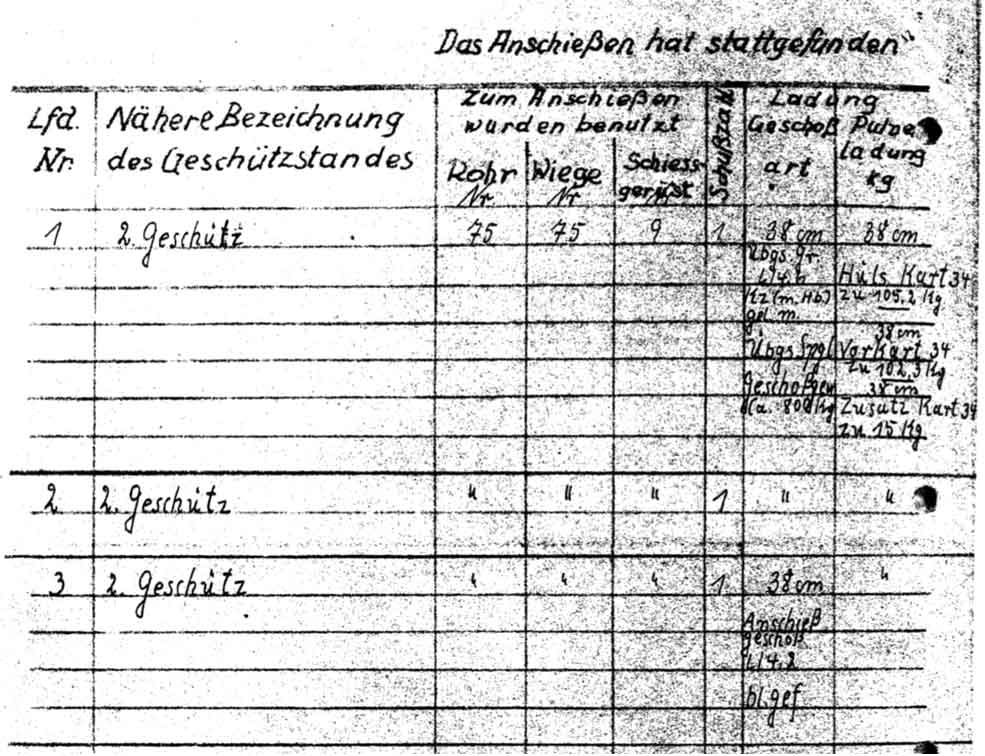 Das Anschießen hat stattgefunden"
Lfd. Nr.
Nähere Bezeichnung des Geschützstandes
Zum Anschießen wurden benutzt
Rohr Nr
Wiege Nr
Schiess-gerüst
Schußzahl
Ladung
Geschoß art
Pulver ladung kg
1 2. Geschütz 75 75 9 1 38 cm 38 cm
Übgs. gr.
L/4.h
Kz (m. Hb.)
gel. m.
Übgs Spgl
Geschoßgew
(ca. 800 Kg
Hüls. Kart 34
zu 105.2 Kg
38 cm
Vorkart 34
zu 102,3 Kg.
38 cm
Zusatz Kart 34
zu 15 Kg
2 2. Geschütz " " " 1 " "
3 2. Geschütz " " " 1 38 cm "
Anschieß
geschoß
L/4.2
bl. gef